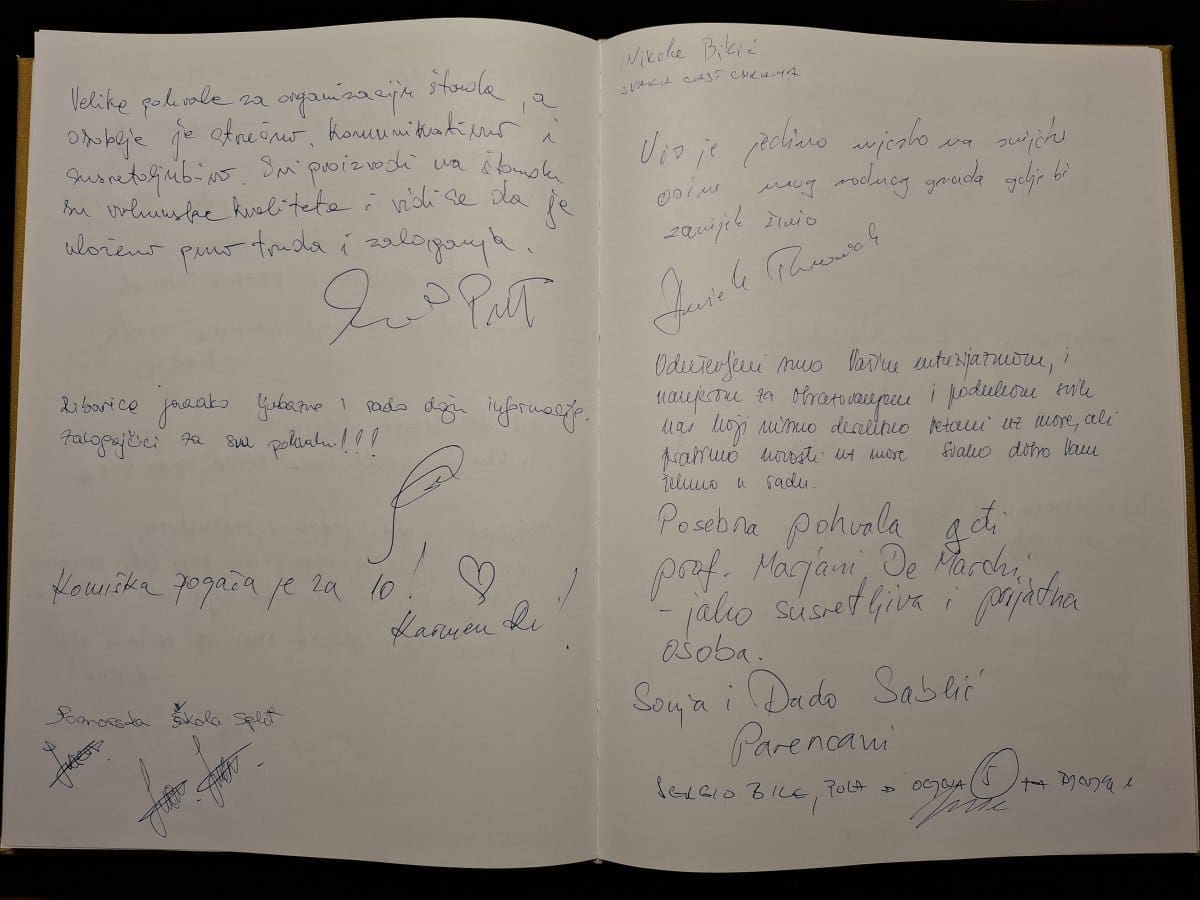 Velike pohvale za organizaciju štanda, a
osoblje je stručno, komunikativno i
susretljivo. Svi proizvodi na štandu
su vrhunske kvalitete i vidi se da je
uloženo puno truda i zalaganja.
Ribarice jednako ljubazne i rado daju informacije.
Zalogajčići za svu pohvalu!!!
Komiška pogača je za 10!
Karmen
Pomorska škola Split
Nikola Bikić
SVAKA ČAST CURAMA
Vis je jedino mjesto na svijetu
osim mog rodnog grada gdje bi
zauvijek živio
Oduševljeni smo Vašim entuzijazmom, i
namjerom za obrazovanjem i podukom svih
nas koji nismo direktno vezani uz more, ali
pratimo novosti uz more Svako dobro Vam
želimo u radu.
Posebna pohvala gđi
prof. Marjani De Marchi,
- jako susretljiva i prijatna
osoba.
Sonja i Dado Sablić
Parencani
SERGIO BILE, PULA OCJENA 5